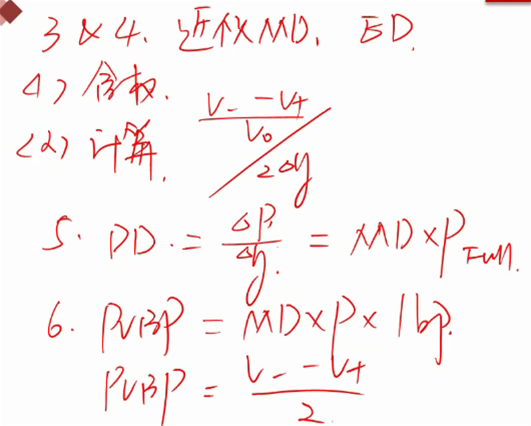 3 & 4. 近似MD. ED.
(1) 含权.
(2) 计算. (V_- - V_+)/V_0 / 2Δy
5. DD. = ΔP/Δy. = MD×P_Full.
6. PVBP = MD×P×1bp.
PVBP = (V_- - V_+)/2.